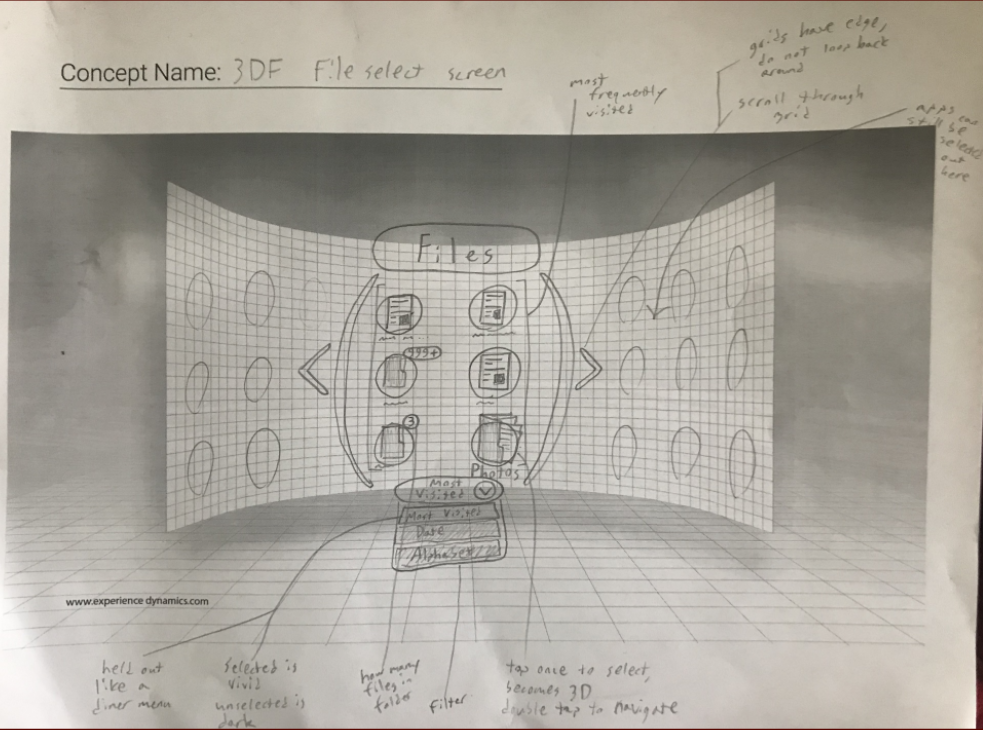 Concept Name: 3DF File select screen
grids have edge,
do not loop back
around
most
frequently
visited
scroll through
grid
apps can
still be
selected
out
here
Files
999+
3
Photos
Most
Visited
Most Visited
Date
Alphabet
www.experience dynamics.com
held out
like a
diner menu
selected is
vivid
unselected is
dark
how many
files in
folder
filter
tap once to select,
becomes 3D
double tap to navigate